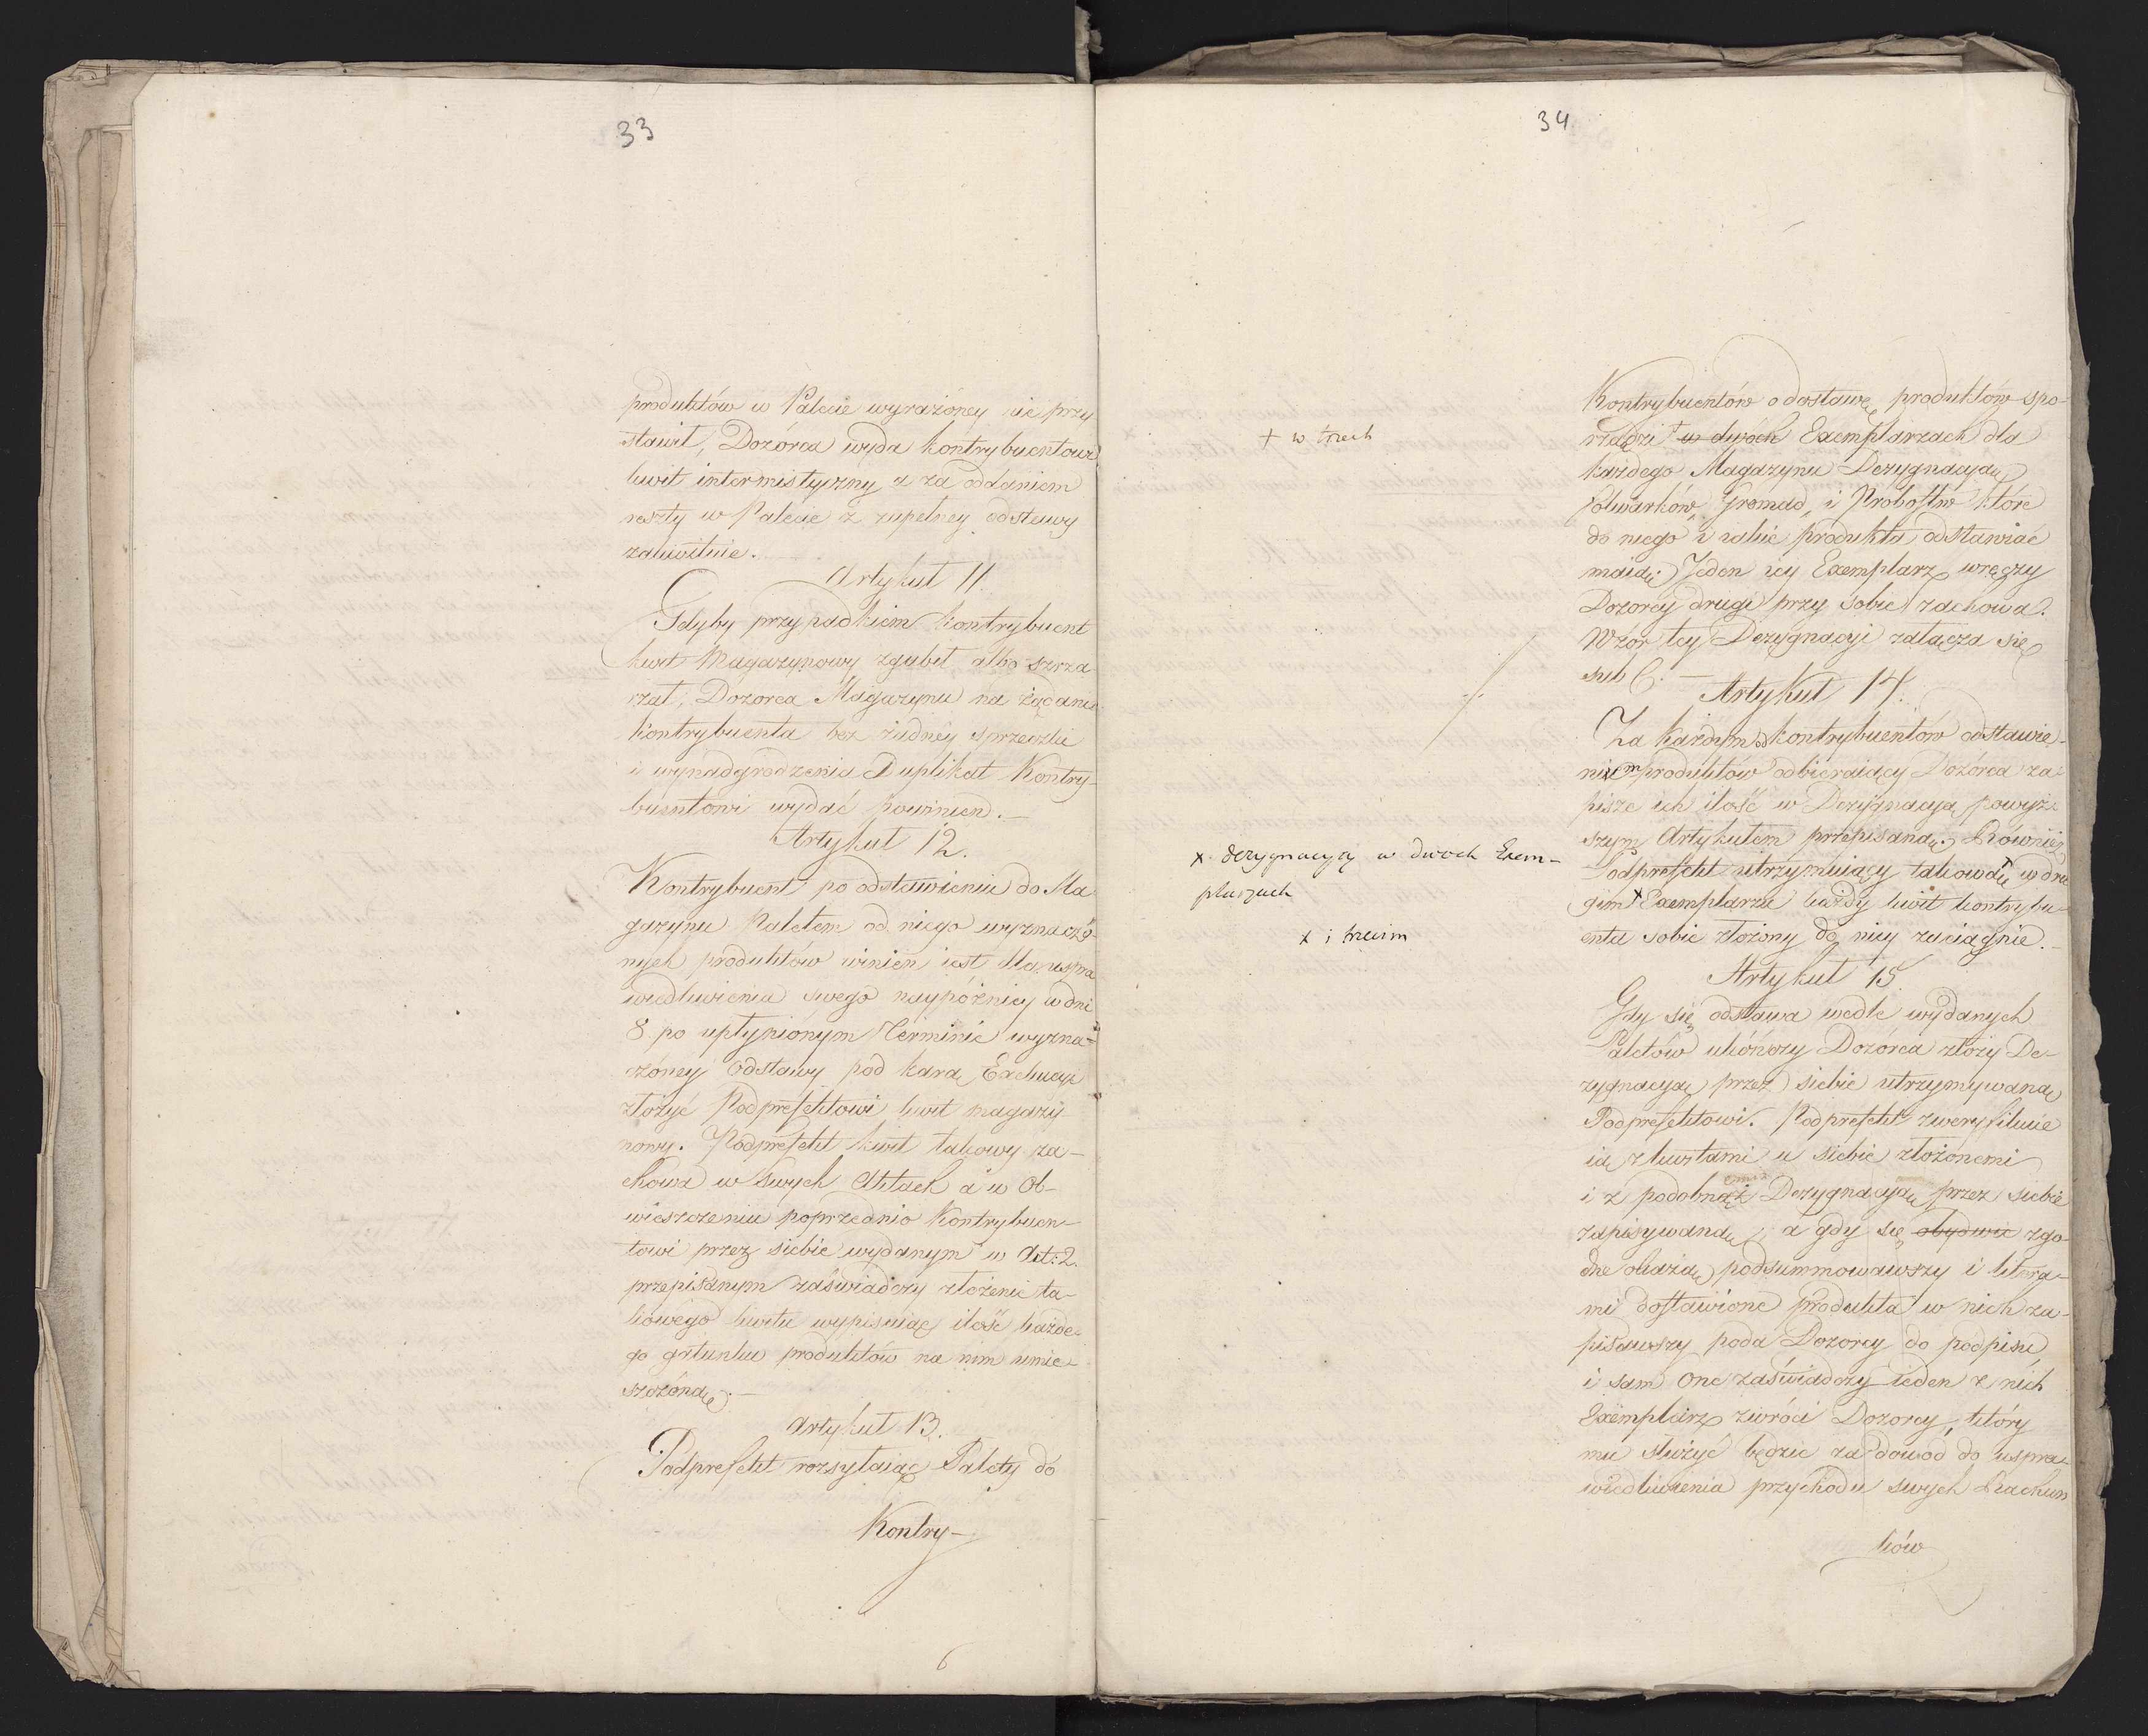 33
produktów w Palecie wyrażóney nie przy
stawił, Dozórca wyda kontrybuentowi
kwit intermistyczny a za oddaniem
reszty w Palecie z zupełney odstawy
zakwituie.
Artykuł 11.
Gdyby przypadkiem kontrybuent
kwit Magazynowy zgubił albo szrza-
rzał, Dozorca Magazynu na żądanie
kontrybuenta bez żadnéy sprzeczki
i wynadgrodzenia Duplikat Kontry-
buentowi wydać powinien.
Artykuł 12.
Kontrybuent po odstawieniu do Ma
gazynu Paletem od niego wyznaczo-
nych produktów winien iest dla uspra
wiedliwienia swego naypóźnicy w dni
8 po upłynionym Terminie wyzna-
czóney Odstawy pod karą Exekucyi
złożyć Podprefektowi kwit magazy
nowy. Podprefekt kwit takowy za-
chowa w Swych Aktach a w Ob-
wieszczeniu poprzednio Kontrybuen-
towi przez siebie wydanym w Art: 2.
przepisanym zaświadczy złożenie ta-
kowego kwitu wypisuiąc ilość każde-
go gatunku produktów na nim umie-
szczoną.
Artykuł 13.
Podprefekt rozsyłaiąc Palety do
Kontry-
6
34.
Kontrybuentów o dostawę produktów spo-
rządzi + w dwóch Exemplarzach dla
+ w trzech
każdego Magazynu Dezygnacyą
Folwarków, Gromad, i Probostw które
do niego i iakie produkta odstawiać
maią; Jeden iey Exemplarz wręczy
Dozorcy drugi przy sobie zachowa.
Wzór tey Dezygnacyi załącza się
sub C.
Artykuł 14.
Za każdym kontrybuentów odstawie-
niem produktów odbieraiący Dozórca za-
pisze ich ilość w Dezygnacyą powyż-
szym Artykułem przepisaną. Również
x dezygnacyią w dwoch Exem-
plarzach
Podprefekt utrzymuiący takową x w dru
gim x Exemplarzu każdy kwit kontrybu-
x i trzecim
enta sobie złożony do niey zaciągnie.
Artykuł 15.
Gdy się odstawa wedle wydanych
Paletów ukończy Dozórca złoży De-
zygnacyą przez siebie utrzymywaną
Podprefektowi. Podprefekt zweryfikuie
ią z kwitami u siebie złożonemi
i z podobnąż Dezygnacyą przez siebie
zapisywaną; a gdy się obydwie zgo-
dne okażą podsummowawszy i litera-
mi dostawione produkta w nich za-
pisawszy poda Dozorcy do podpisu
i sam One zaświadczy ieden z nich
Exemplarz zwróci Dozorcy, który
mu służyć będzie za dowód do uspra-
wiedliwienia przychodu swych Rachun
ków